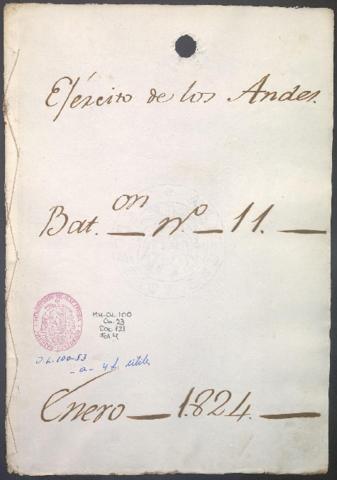 Ejército de los Andes.
Bat.on — nº. — 11. —
MH-OL.100
Ca. 23
Doc 121
Fol 4
O.L. 100-83
-a- 4 f. útiles
Enero — 1.824. —